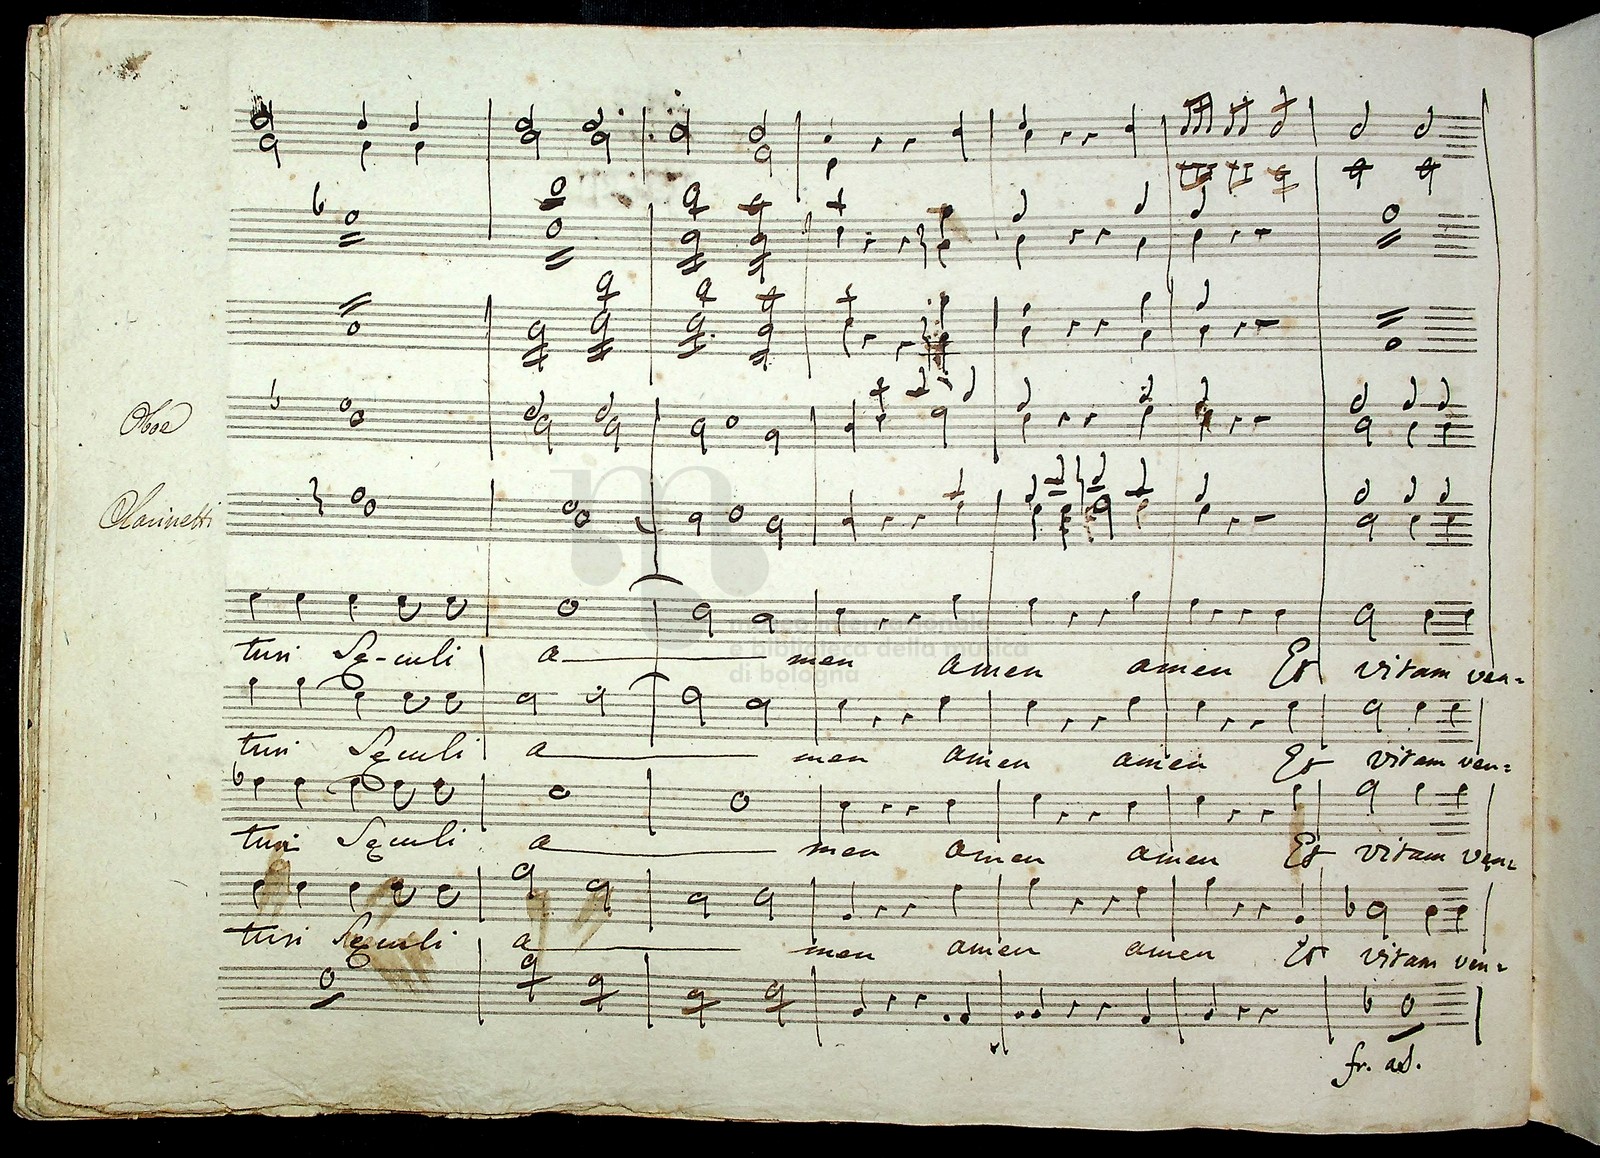 Oboe
Clarinetti
museo internazionale
e biblioteca della musica
di bologna
turi Sę-culi a men amen amen Et vitam ven=
turi Sęculi a men amen amen Et vitam ven=
turi Sęculi a men amen amen Et vitam ven=
turi Sęculi a men amen amen Et vitam ven=
fr. ad.